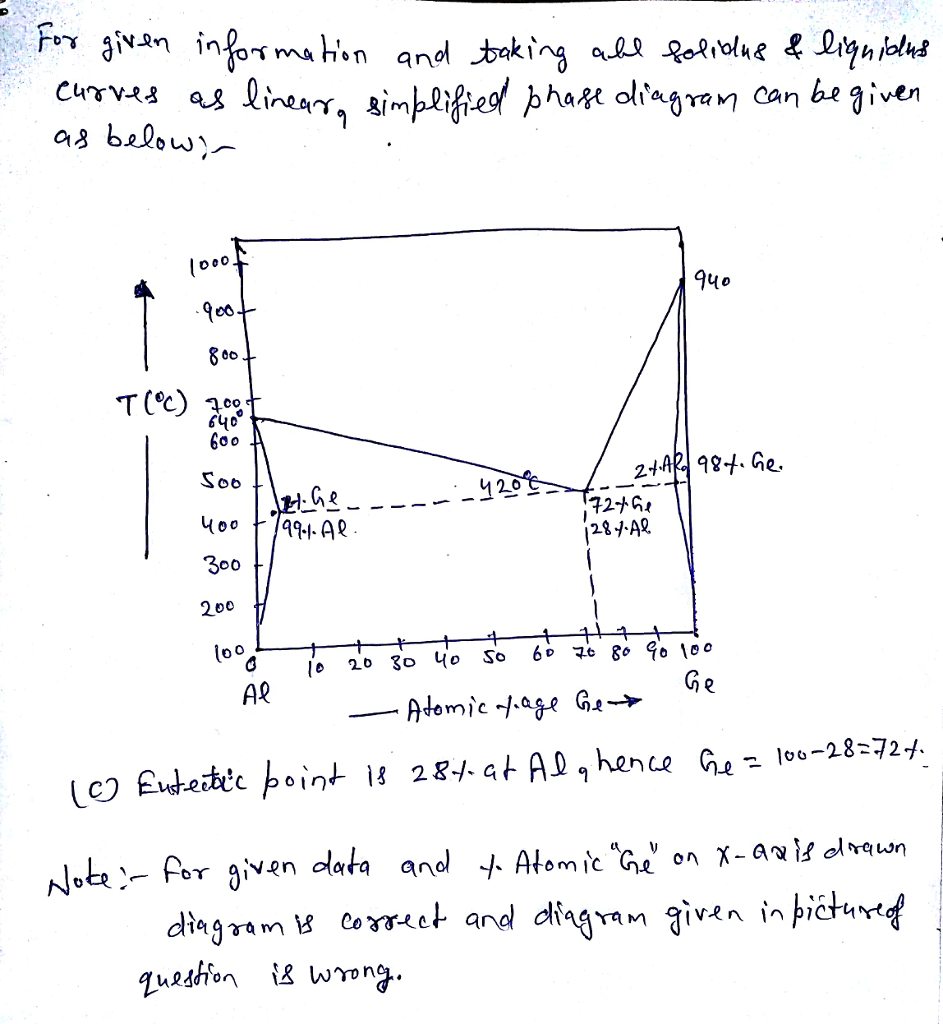 For given information and taking all solidus & liquidus
curves as linear, simplified phase diagram can be given
as below:-
1000
940
900
800
T(°C) 700
640°
600
2%Al 98% Ge.
500 420°C
Ge 72%Ge
400 99%. Al. 28%Al
300
200
100
0 10 20 30 40 50 60 70 80 90 100
Al Ge
Atomic %age Ge→
(C) Eutectic point is 28% at Al, hence Ge = 100-28=72%.
Note:- For given data and % Atomic "Ge" on X-axis drawn
diagram is correct and diagram given in picture of
question is wrong.